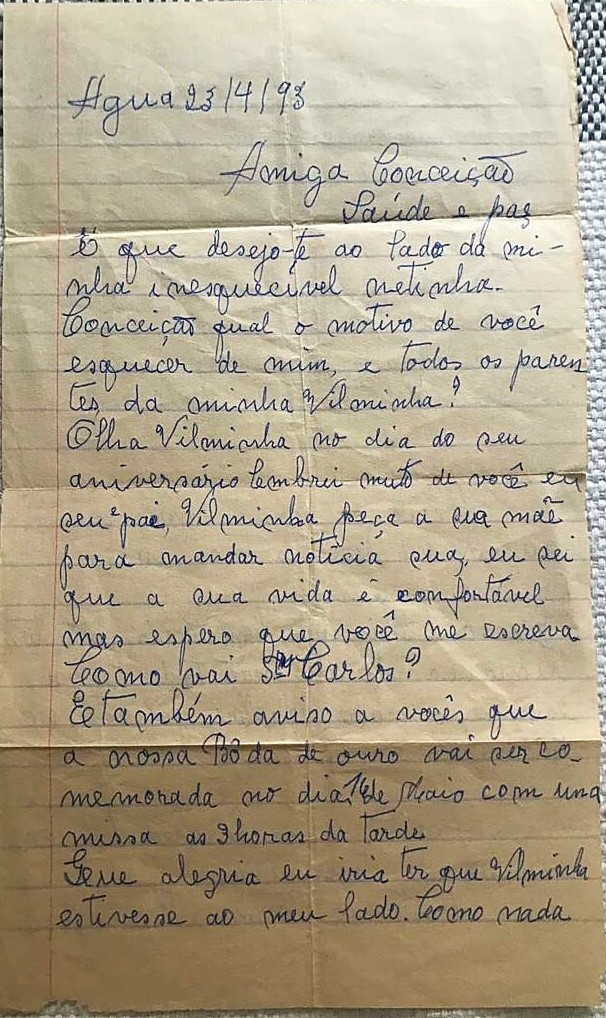 Agua 23/4/93
Amiga Conceição
Saúde e paz
É que desejo-te ao lado da mi-
nha inesquecível netinha.
Conceição qual o motivo de você
esquecer de mim, e todos os paren
tes da minha Vilminha?
Olha Vilminha no dia do seu
aniversário lembrei muto de você eu
seu pai, Vilminha peça a sua mãe
para mandar notíciá sua, eu sei
que a sua vida é confortável
mas espero que você me escreva
Como vai Carlos?
E também aviso a vocês que
a nossa Bôda de ouro vai ser co-
memorada no dia de Maio com uma
missa as horas da tarde
alegria eu iria ter que Vilminha
estivesse ao meu lado. Como nada